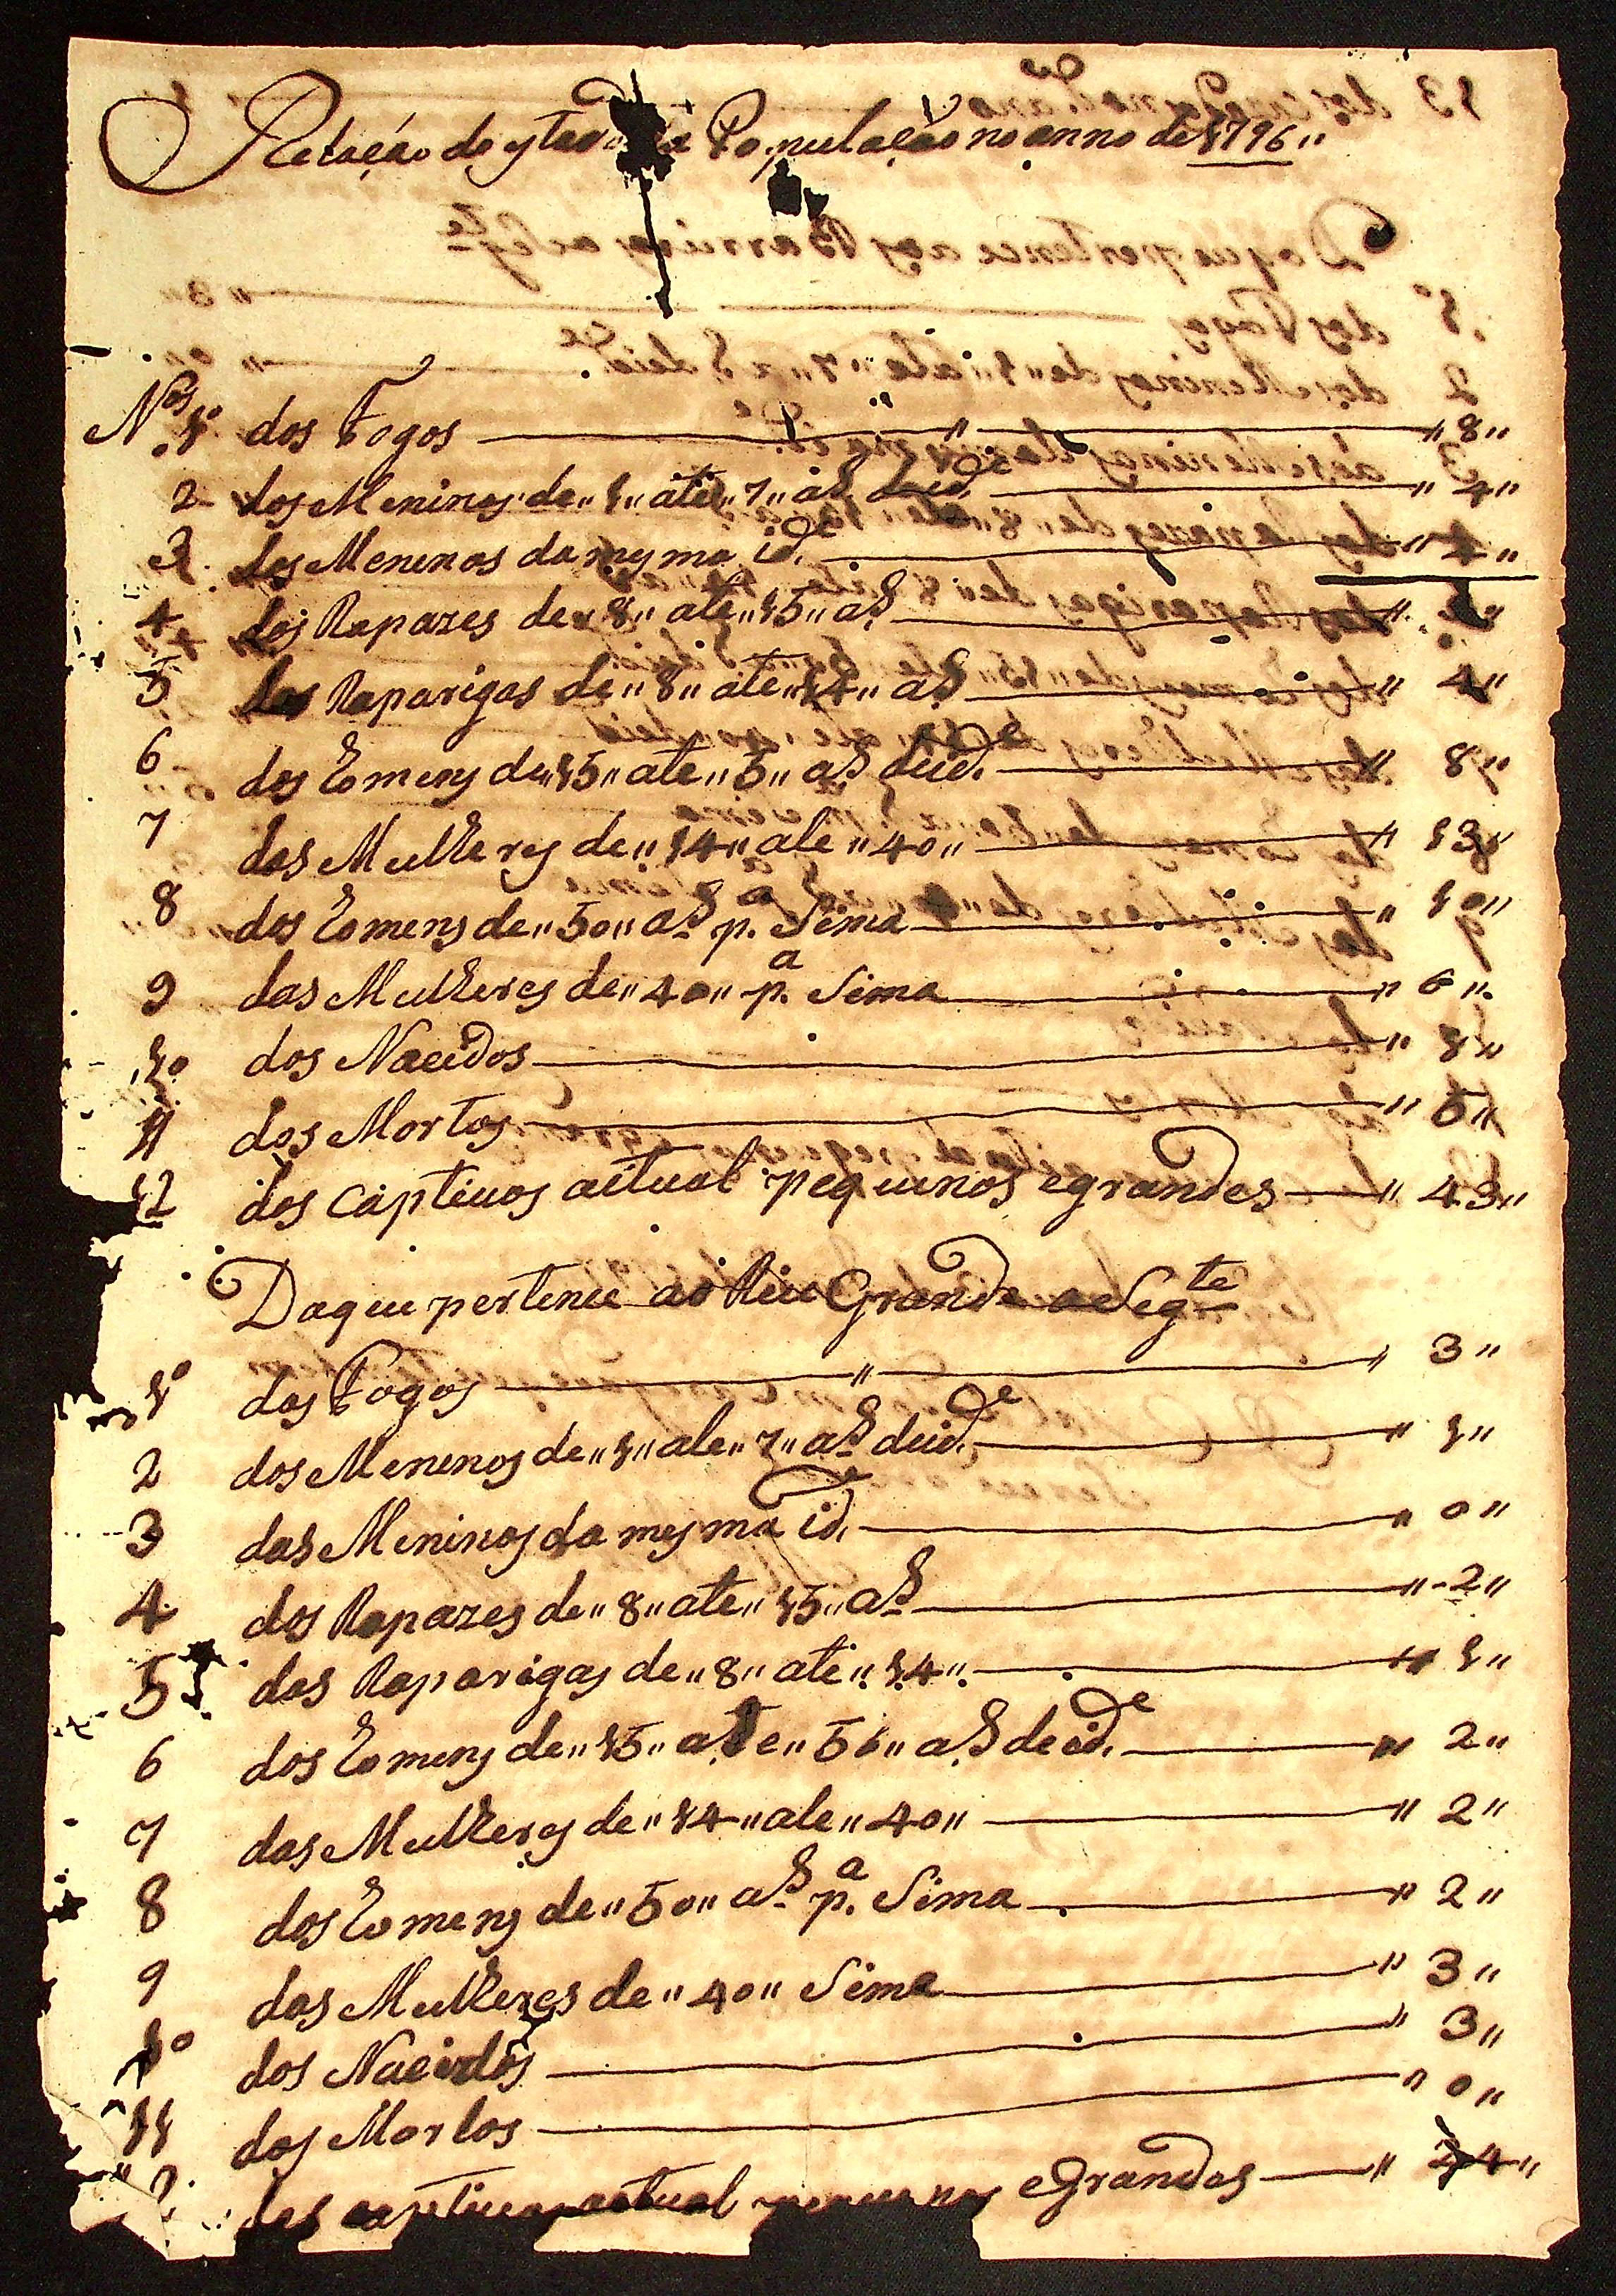 Relação do ystado da População no anno de 1796„
N.os 1º dos Fogos „ „ 8„
2 dos Meninos de„ 1„ ate„ 7„ a.s de id.e „ 4„
3 das Meninas da mesma id.e „ 4„
4 dos Rapazes de„ 8„ ate„ 15„ a.s „
5 das Raparigas de„ 8„ ate„ 14„ a.s „ 4„
6 dos Eomens de„ 15„ ate„ 5„ a.s de id.e „ 8„
7 das Mulheres de„ 14„ ate„ 40„ „ 13„
8 dos Eomens de„ 50„ a.s p.a Sima „ 10„
9 das Mulheres de„ 40„ p.a Sima „ 6„
10 dos Nacidos „ 8„
11 dos Mortos „ 5„
12 dos captivos aitual pequenos e grandes „ 43„
Do que pertence ao Rio Grande a Seg.te
1º dos Fogos „ „ 3„
2 dos Meninos de„ 1„ ate„ 7„ a.s de id.e „ 1„
3 das Meninas da mesma id.e „ 0„
4 dos Rapazes de„ 8„ ate„ 15„ a.s „ 2„
5 das Raparigas de„ 8„ ate„ 14„ „ 1„
6 dos Eomens de„ 15„ ate„ 50„ a.s de id.e „ 2„
7 das Mulheres de„ 14„ ate„ 40„ „ 2„
8 dos Eomens de„ 50„ a.s p.a Sima „ 2„
9 das Mulheres de„ 40„ Sima „ 3„
10 dos Nacidos „ 3„
11 dos Mortos „ 0„
2 dos captivos actual pequenos e Grandes „ 24„